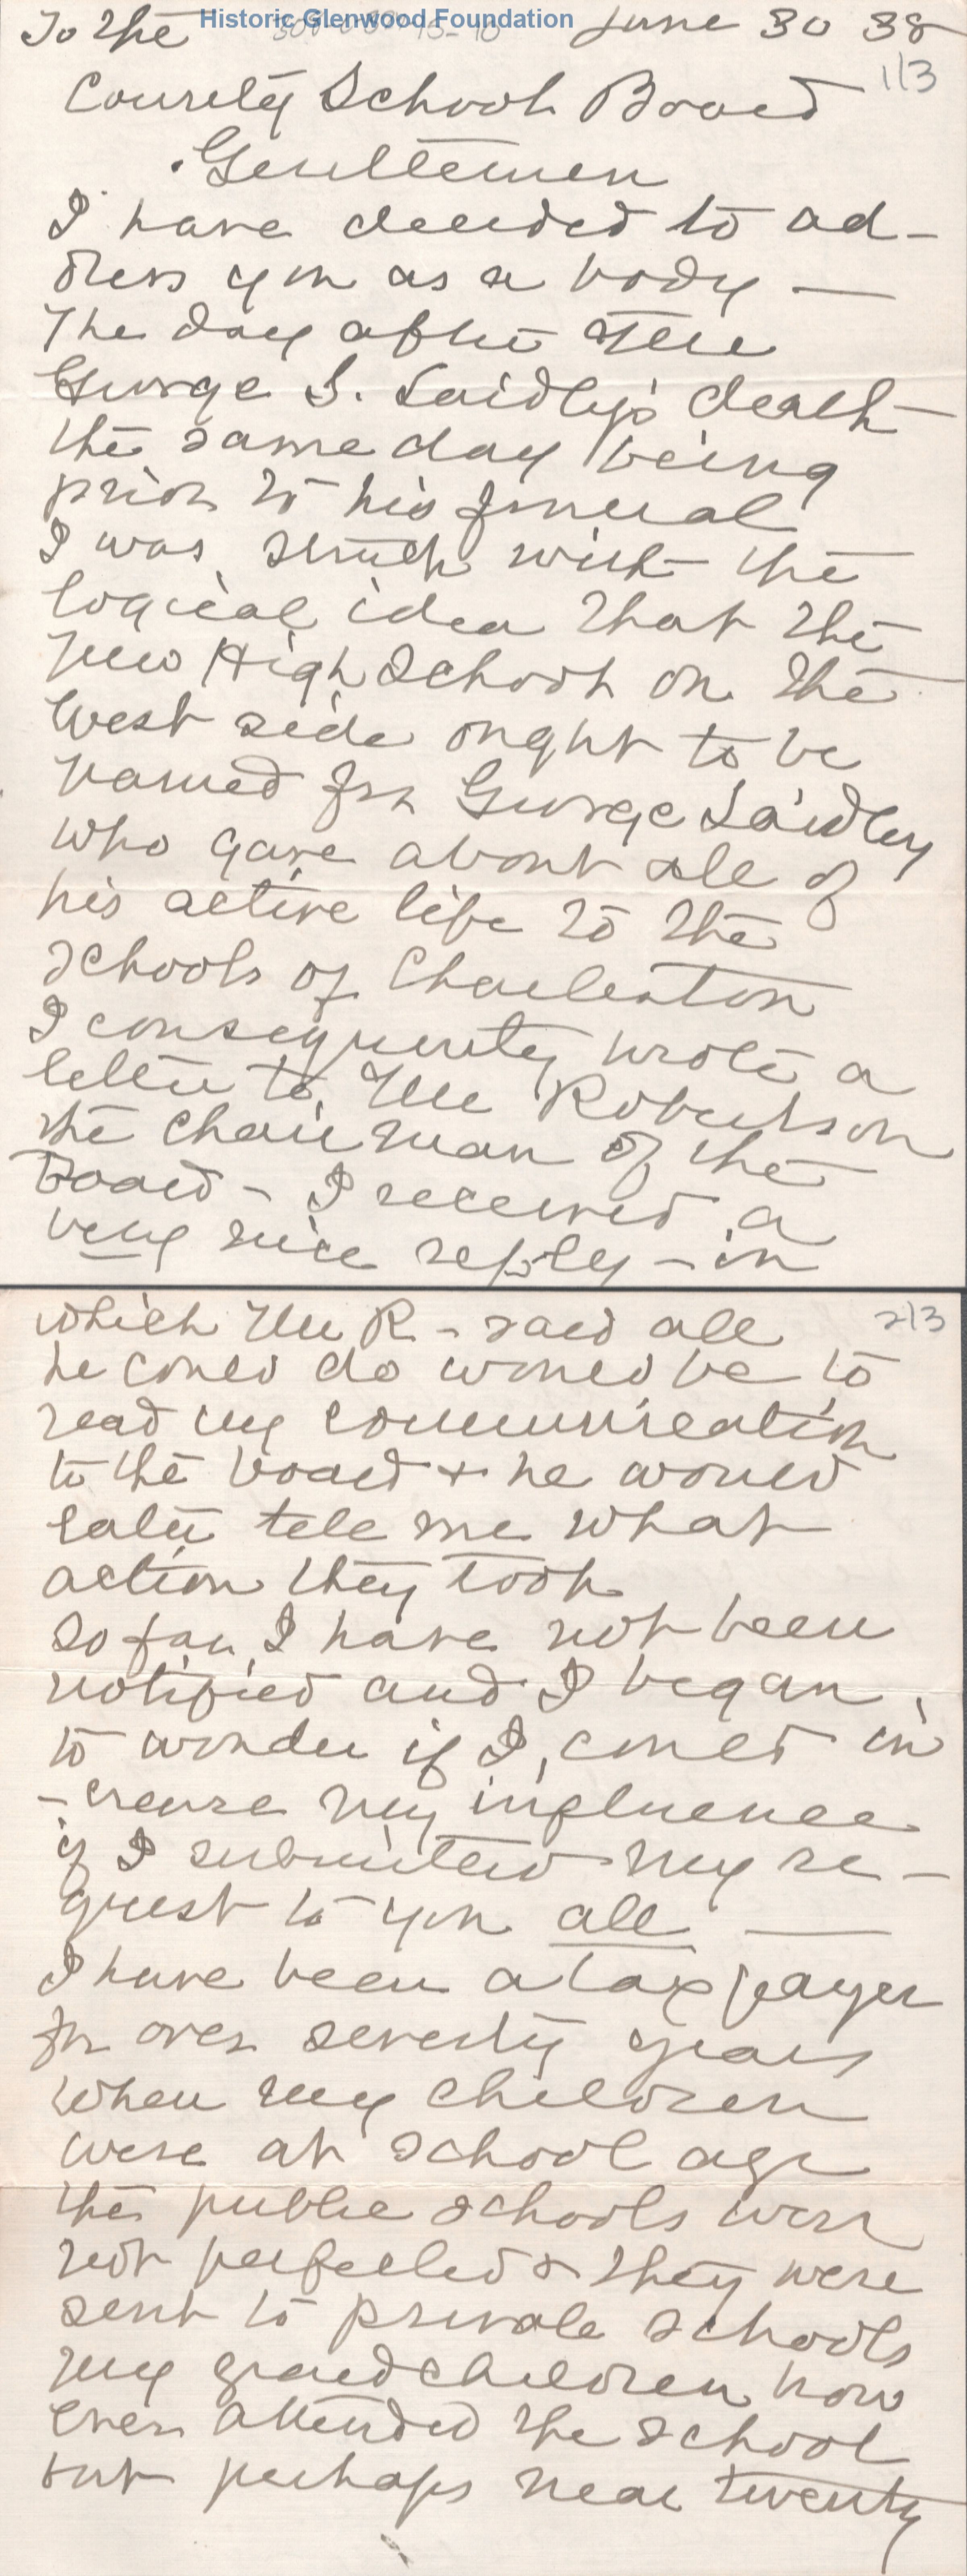 Historic Glenwood Foundation
To the June 30 38
1/3
County School Board
Gentlemen
I have decided to ad-
dress you as a body —
The day after Mr
George S. Laidley's death —
the same day being
prior to his funeral
I was struck with the
logical idea that the
New High School on the
West side ought to be
named for George Laidley
who gave about all of
his active life to the
schools of Charleston
I consequently wrote a
letter to Mr Robertson
the chairman of the
Board - I received a
very nice reply - in
which Mr R - said all
2/3
he could do would be to
read my communication
to the board & he would
later tell me what
action they took
So far I have not been
notified and I began
to wonder if I could in
-crease my influence
if I submitted my re-
quest to you all —
I have been a tax payer
for over seventy years
when my children
were at school age
the public schools were
not perfected & they were
sent to private schools
my grandchildren how
ever attended the school
but perhaps near twenty